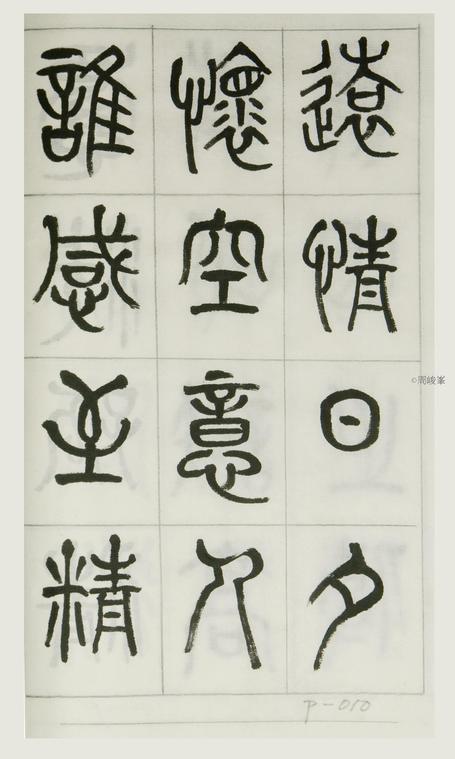 遠情日夕
懷空意人
誰感至精
©周峻峯
P-010